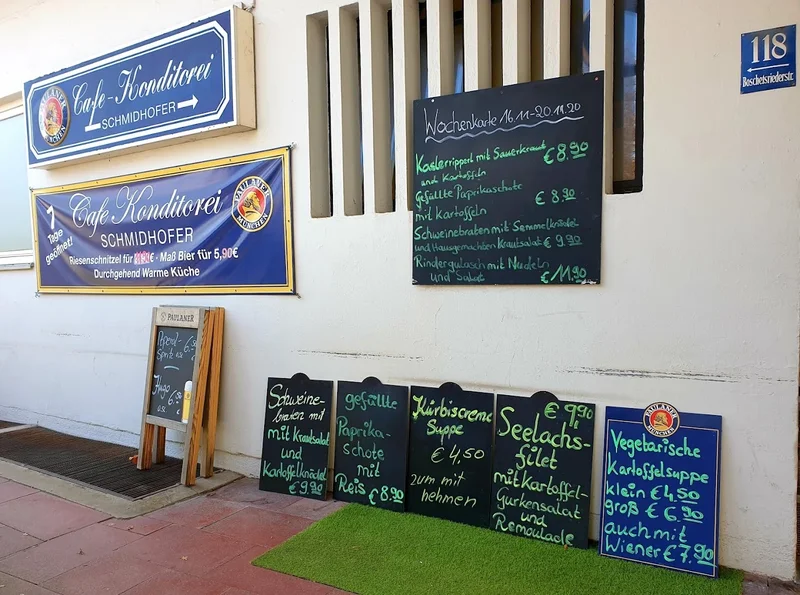 PAULANER
MÜNCHEN
Cafe-Konditorei
SCHMIDHOFER
7
Tage
geöffnet!
Cafe Konditorei
SCHMIDHOFER
Riesenschnitzel für € - Maß Bier für 5,90€
Durchgehend Warme Küche
PAULANER
MÜNCHEN
Wochenkarte 16.11-20.11.20
Kasslerripperl mit Sauerkraut
und Kartoffeln € 8.90
Gefüllte Paprikaschote
mit Kartoffeln € 8.90
Schweinebraten mit Semmelknödel
und Hausgemachten Krautsalat € 9.90
Rindergulasch mit Nudeln
und Salat € 11.90
118
Boschetsriederstr.
PAULANER
Aperol-
Spritz
Hugo
Schweine-
braten mit
mit Krautsalat
und
Kartoffelknödel
€ 9.90
gefüllte
Paprika-
schote
mit
Reis € 8.90
Kürbiscreme
Suppe
€ 4,50
zum mit
nehmen
€ 9,90
Seelachs-
filet
mit Kartoffel-
Gurkensalat
und
Remoulade
PAULANER
MÜNCHEN
Vegetarische
Kartoffelsuppe
klein € 4,50
groß € 6.90
auch mit
Wiener € 7.90